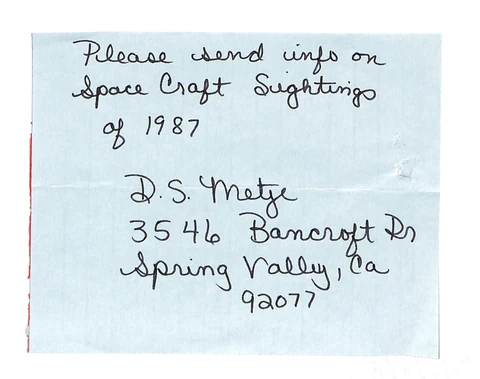 Please send info on
Space Craft Sightings
of 1987
D.S. Metze
3546 Bancroft Dr
Spring Valley, Ca
92077